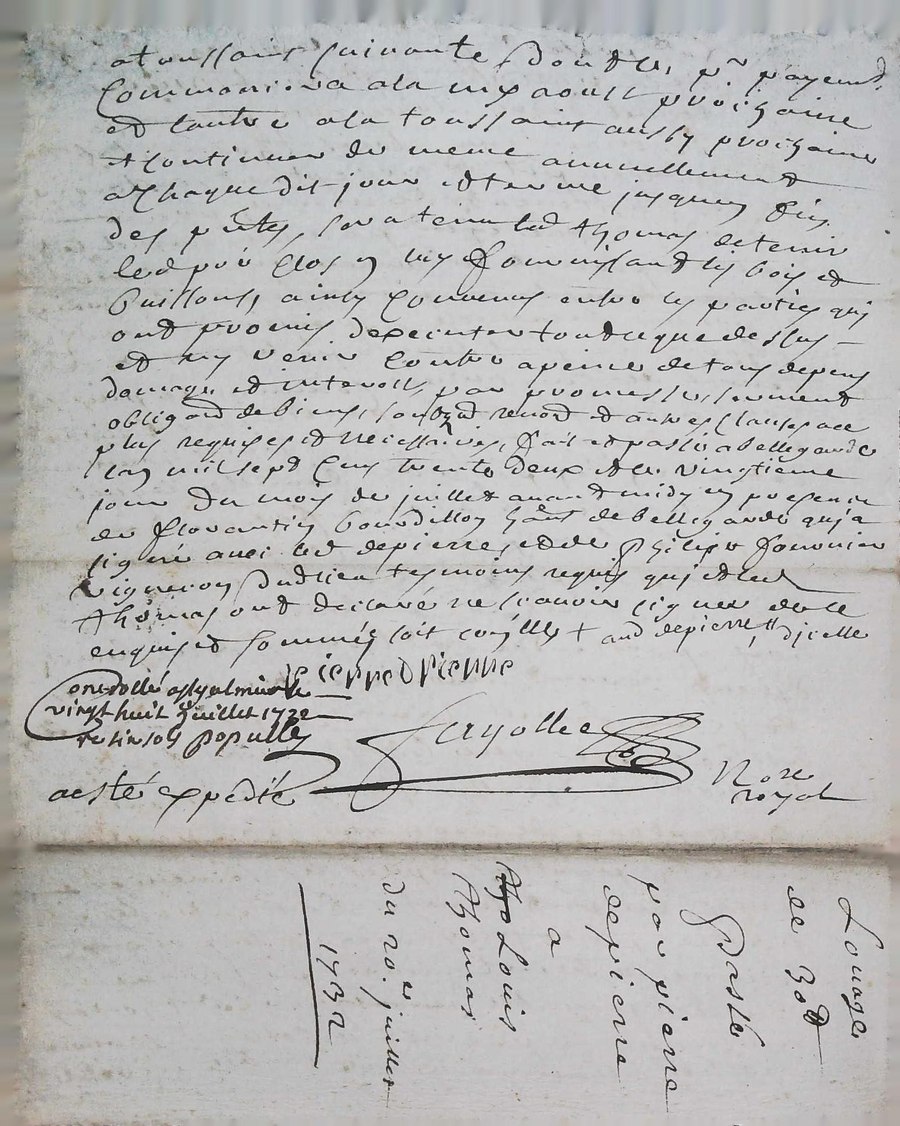 a toussaint suivante dont le pr payement
commancera a la my aoust prochaine
et lautre a la toussaint aussy prochaine
et continuer de meme annuellement
a chaque dit jour et terme jusques fin
des pntes, sera tenu led thomas de tenir
led pré clos en luy fournissant les bois et
buissons, ainsy convenus entre les parties qui
ont promis dexecuter tout ce que dessus
et ny venir contre a peine de tous depens
domage et interest, par promesse, serment
obligaon de biens, renonon et autres clauses ace
plus requises et necessaires, fait et passé a bellegarde
lan mil sept cens trente deux et le vingtieme
jour du mois de juillet avant midy en presence
de florantin bourdillon hant de bellegarde qui a
signé avec led depierre, et de philipe fournier
vigneron dudlieu tesmoins requis qui et led
thomas ont declaré ne scavoir signer de ce
enquis et sommés soit conllé + aud depierre
pierre d pierre
controllé a st galmier le
vingt huit juillet 1732
populle
fayolle
Nore
royal
a esté expedié
Louage
de 30 tt
Daste
par pierre
depierre
a
Louis
thomas
du 20e juillet
1732